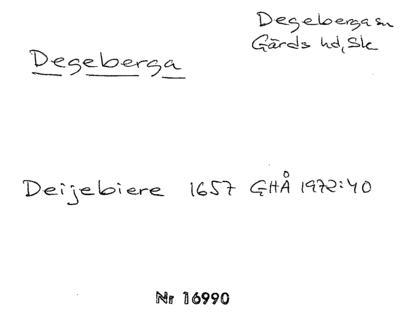 Degeberga sn
Gärds hd, Sk
Degeberga
Deijebiere 1657 GHÅ 1972:40
Nr 16990